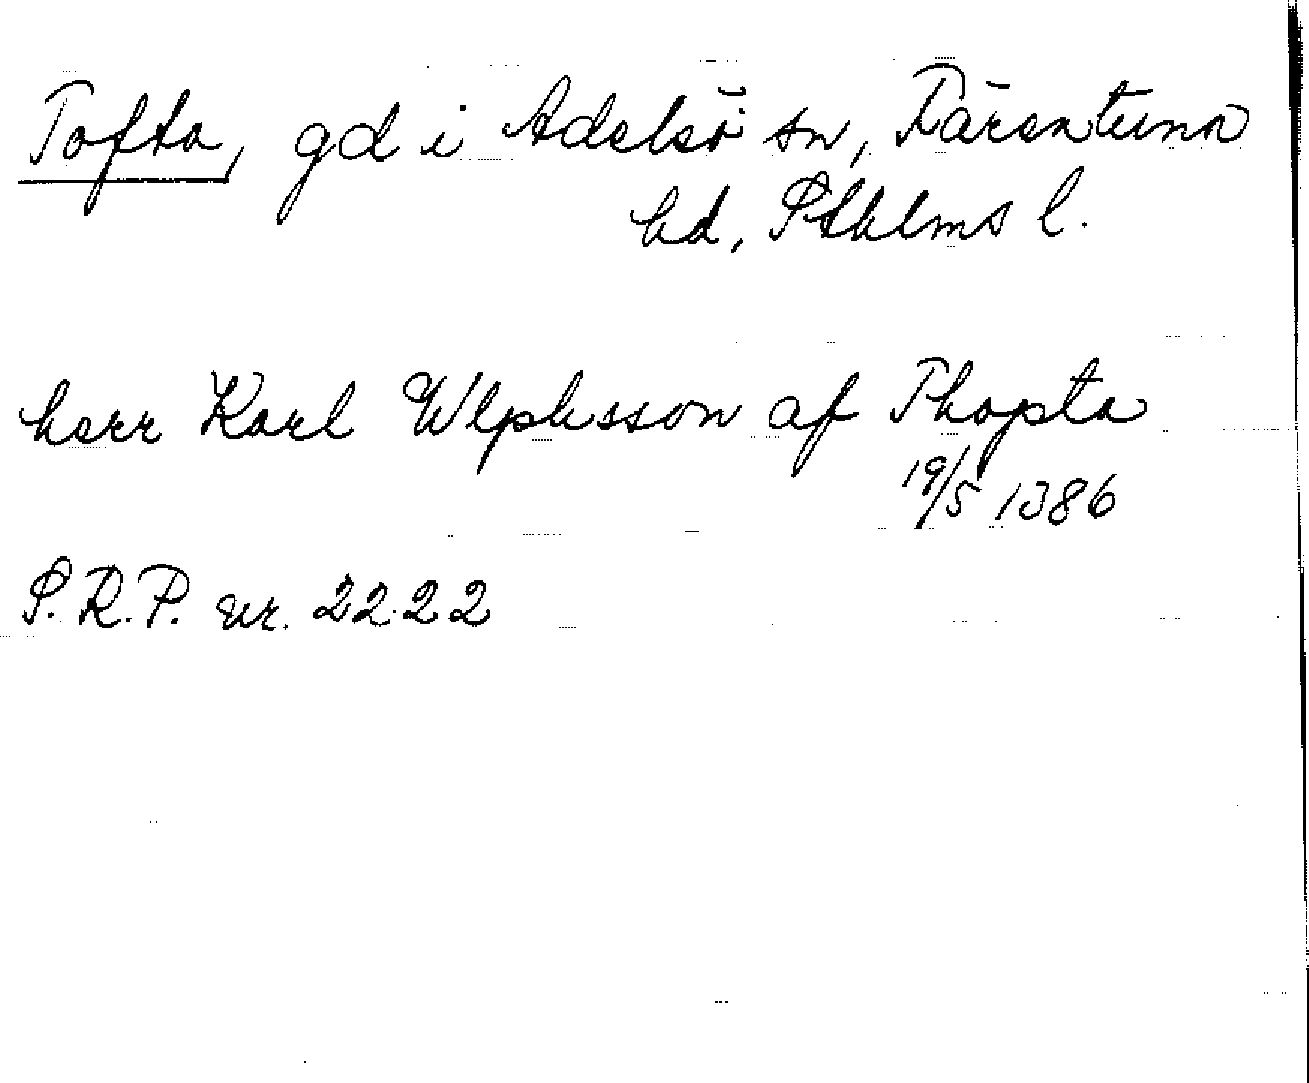 Tofta, gd i Adelsö sn, Färentuna
hd, Sthlms l.
herr Karl Wlphsson af Thopta
19/5 1386
S.R.P. nr. 2222